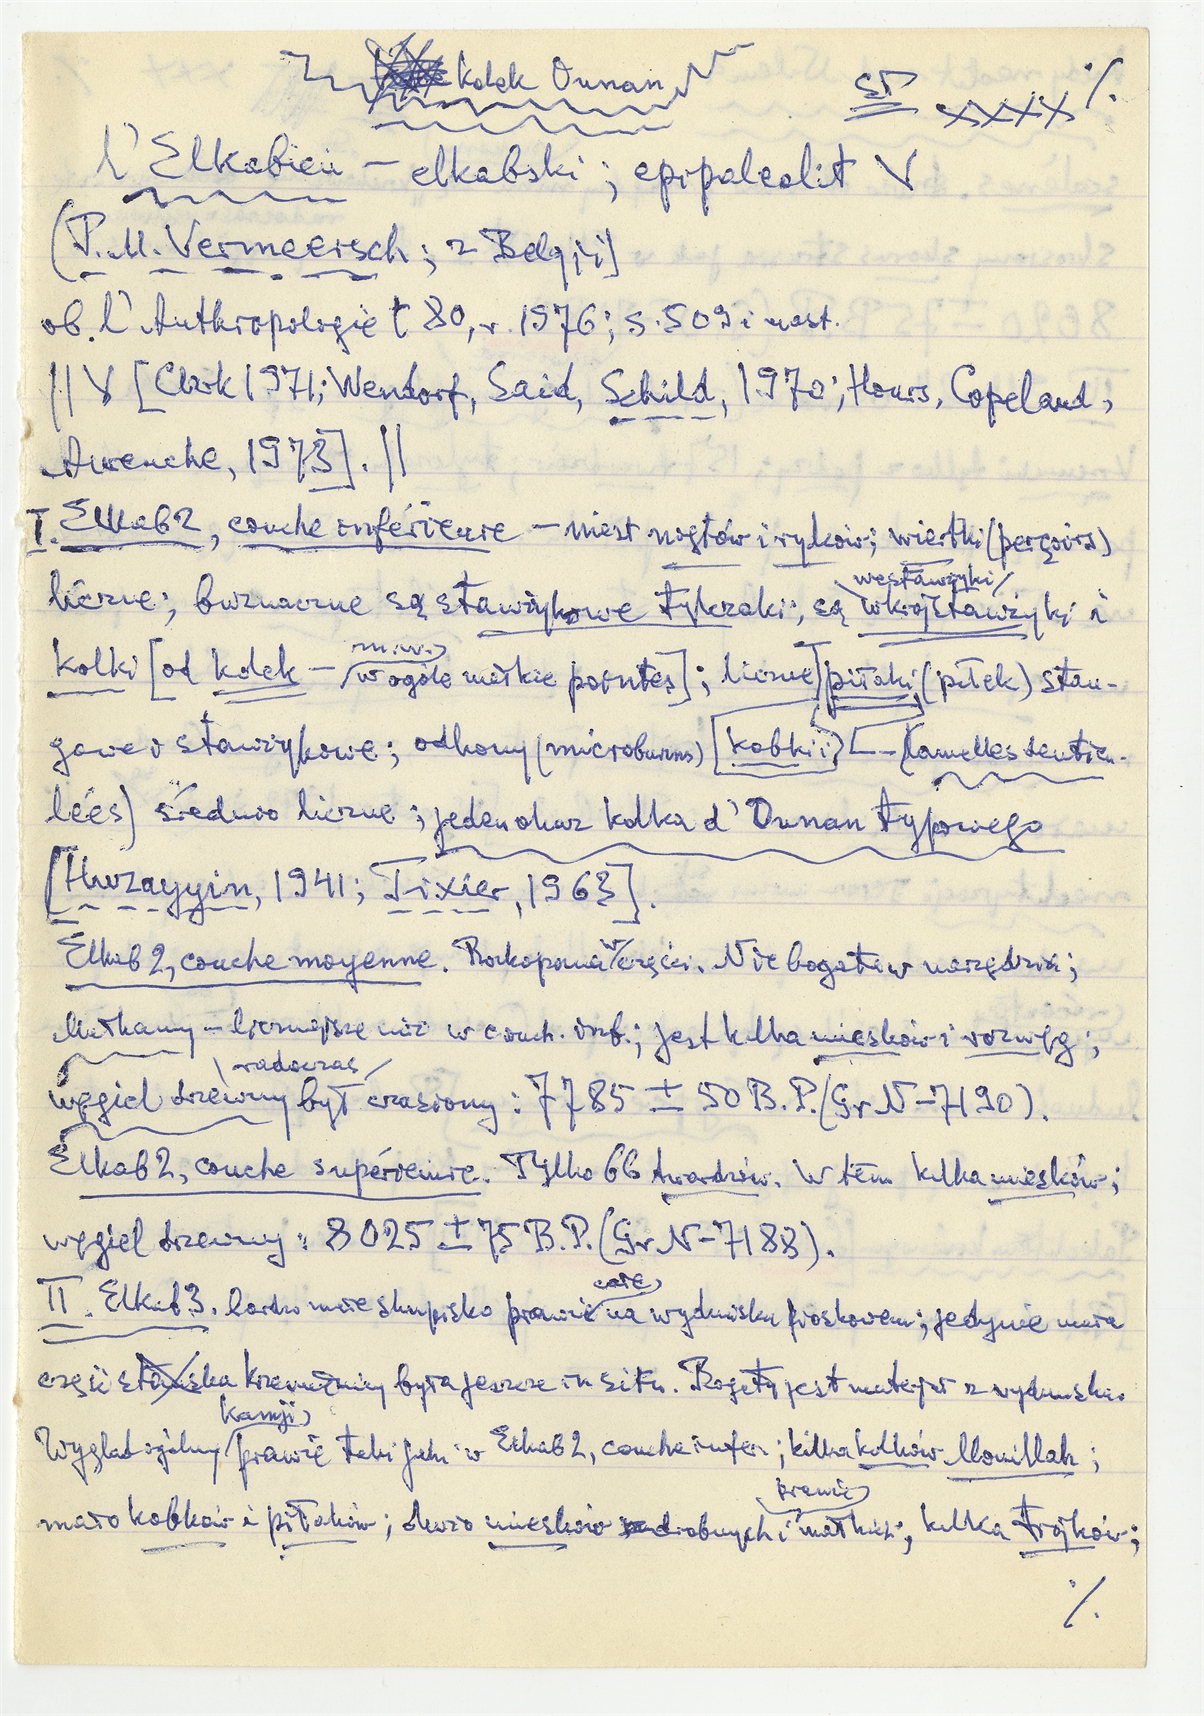 kolek Ounan
ST XXXX ./.
l'Elkabien – elkabski; epipaleolit V
(P. M. Vermeersch; z Belgji]
ob. l'Anthropologie t 80, r. 1976; s. 509 i nast.
|| V [Clark 1971; Wendorf, Said, Schild, 1970; Hours, Copeland,
Aurenche, 1973]. ||
I. Elkab 2, couche inférieure – niest nogtów i rylców; wiertki (perçoirs)
liczne; buznaczne są stawzykowe tylczaki; są wkrójstawzyki i
westawzyki
kolki [od kolek – w ogóle małkie pointes]; liczne] piłaki (piłek) stan-
m. w.
gowe i stawzykowe; odłomy (microburins) [kabki i] [– lamelles denticu-
lées] średnio liczne; jeden okaz kolka d'Ounan typowego
[Huzayyin, 1941; Tixier, 1963].
Elkab 2, couche moyenne. Rozkopana w części. Nie bogata w narzędzia;
– liczniejsze niż w couch. inf.; jest kilka niesków i rozwęg;
radoczas
węgiel drzewny był czasiony: 7785 ± 50 B.P. (GrN–7190).
Elkab 2, couche supérieure. Tylko 66 twardzów. W tem kilka niesków;
węgiel drzewny: 8025 ± 75 B.P. (GrN–7188).
II. Elkab 3. bardzo małe skupisko prawie na wydmisku piaskowem; jedynie mała
całe
część krzemienicy była jeszcze in situ. Bogaty jest materjał z wydmiska.
Wygląd ogólny prawie taki jak i w Elkab 2, couche infer.; kilka kolków Mouillah;
kamji
mało kabków i piłaków; dużo niesków drobnych i małkich; kilka trójków;
prawie
./.